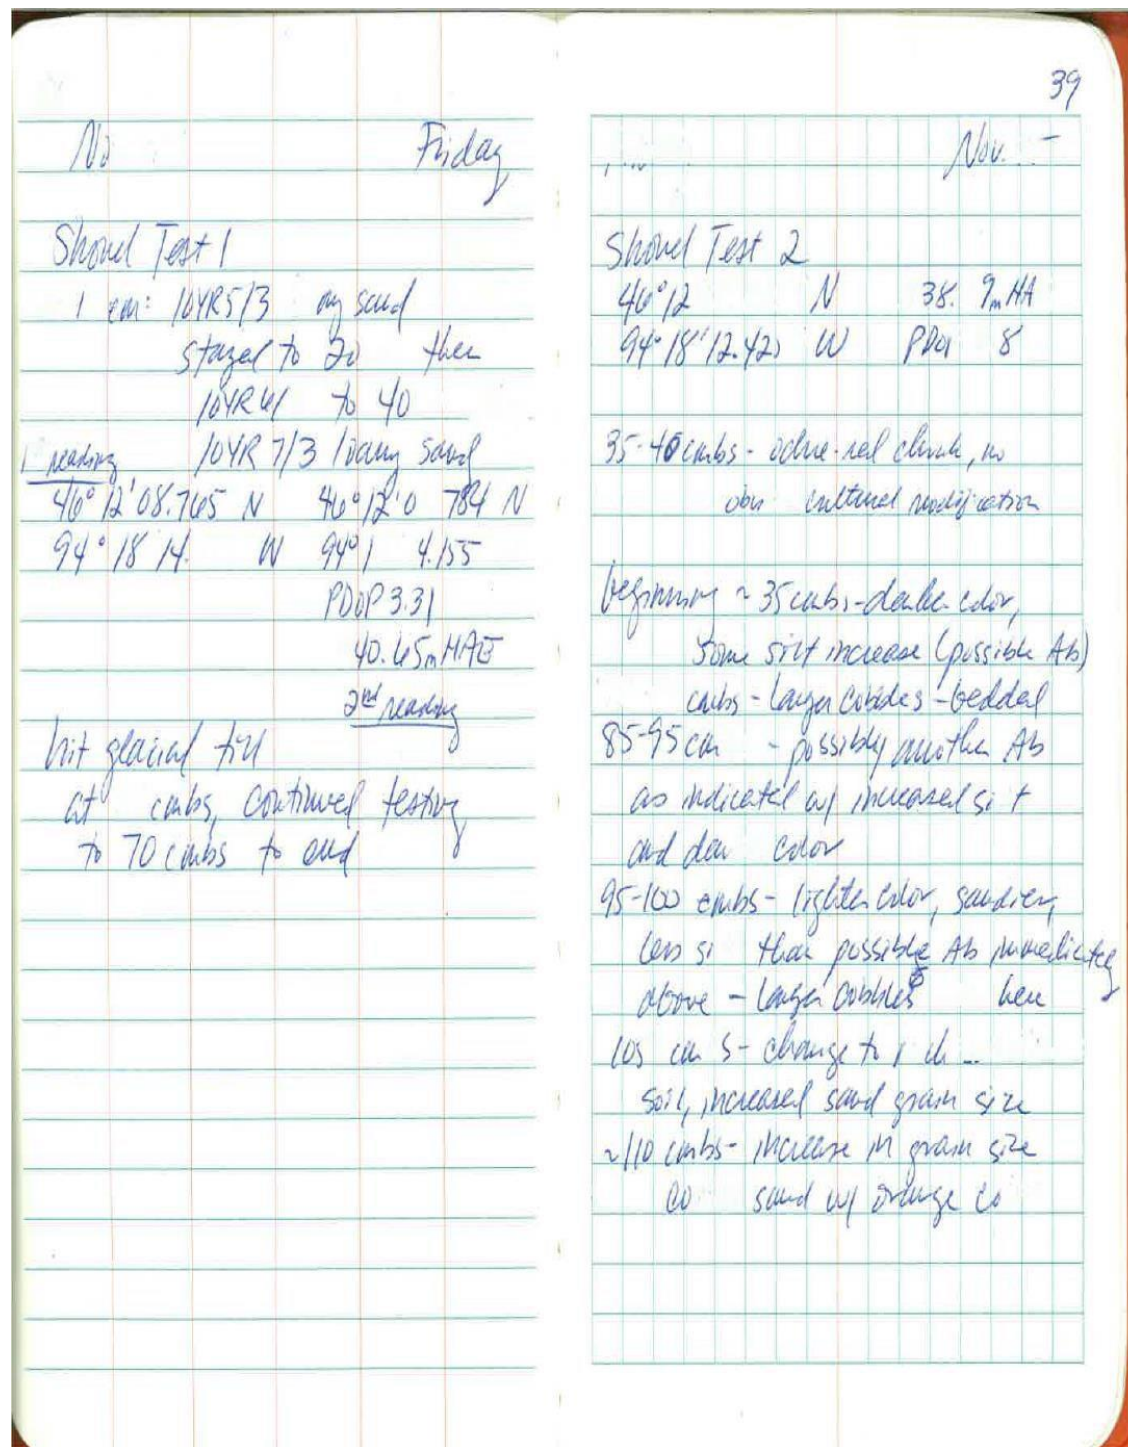 No Friday
Shovel Test 1
1 cm: 10YR5/3 my sand
stayed to 20 then
10YR 6/ to 40
10YR 7/3 loamy sand
1 reading
46° 12' 08.765 N 46° 12' 0 784 N
94° 18 14. W 94° 1 4.155
PDOP 3.31
40.65m HAE
2nd reading
hit glacial till
at cmbs, continued testing
to 70 cmbs to end
39
Nov.
Shovel Test 2
46° 12 N 38. 9m HA
94° 18' 12.42 W PDO 8
35-40 cmbs - ochre-red chunk, no
obv cultural modification
beginning ~ 35 cmbs - darker color,
some silt increase (possible Ab)
cmbs - larger cobbles - bedded
85-95 cm - possibly another Ab
as indicated w/ increased si t
and color
95-100 cmbs - lighter color, sandier,
less si than possible Ab immediately
above - larger cobbles here
105 cm s - change to
soil, increased sand grain size
~110 cmbs - increase in grain size
co sand w/ orange co